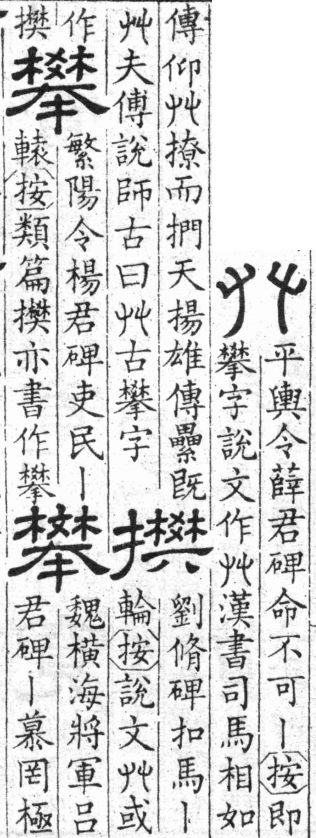 𠬜
平輿令薛君碑命不可丨按即
攀字說文作𠬜漢書司馬相如
傳仰𠬜撩而捫天揚雄傳纍既
𠬜夫傅說師古曰𠬜古攀字
攀
劉脩碑扣馬丨
輪按說文𠬜或
作
攀
攀
繁陽令楊君碑吏民丨
轅按類篇攀亦書作攀
攀
魏橫海將軍呂
君碑丨慕罔極